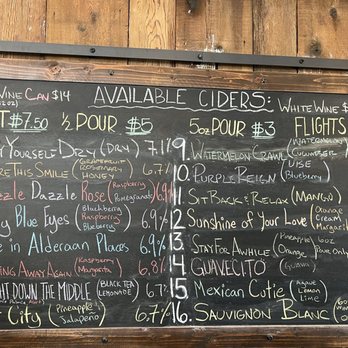 WINE CAN $14 AVAILABLE CIDERS: WHITE WINE $
$7.50 ½ POUR $5 5oz POUR $3 FLIGHTS
YOURSELF DRY (DRY) 7.1% 9. WATERMELON CRAWL (WATERMELON CUCUMBER
THIS SMILE (GRAPEFRUIT ROSEMARY HONEY) 6.7% 10. PURPLE REIGN (Blueberry)
DAZZLE ROSE (Raspberry Pomegranate) 6.9% 11. SIT BACK & RELAX (MANGO)
BLUE EYES (Blackberry Raspberry Blueberry) 6.9% 12. SUNSHINE OF YOUR LOVE (Orange Cream
IN ALDERAAN PLACES 6.9% 13. STAY FOR AWHILE (Pineapple Orange) 6oz Pour Only
AWAY AGAIN (Raspberry Margarita) 6.8% 14. GUAVECITO (GUAVA)
DOWN THE MIDDLE (BLACK TEA LEMONADE) 6.7% 15. MEXICAN CUTIE (Agave Lemon Lime)
CITY (Pineapple Jalapeño) 6.7% 16. SAUVIGNON BLANC